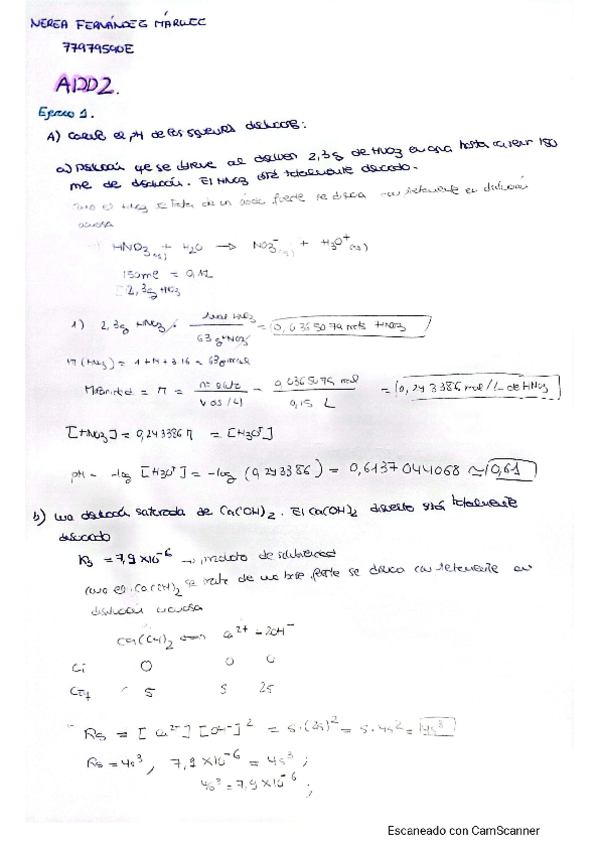 NEREA FERNÁNDEZ MÁRQUEZ
77979590E
ADD2.
Ejercicio 1.
A) Calcule el pH de las siguientes disoluciones:
a) Disolución que se obtiene al disolver 2,3g de HNO3 en agua hasta obtener 150
ml de disolución. El HNO3 está totalmente disociado.
Como el HNO3 se trata de un ácido fuerte se disocia completamente en disolución
acuosa
HNO3(ac) + H2O → NO3-(ac) + H3O+(ac)
150ml =
2,3g HNO3
1) 2,3g HNO3 · 1mol HNO3 / 63 g HNO3 = 0,0365079 mols HNO3
M(HNO3) = 1+14+3·16 = 63g/mol
Molaridad = M = nº soluto / V dis (L) = 0,0365079 mol / 0,15 L = 0,243386 mol/L de HNO3
[HNO3] = 0,243386 M = [H3O+]
pH = -log [H3O+] = -log (0,243386) = 0,6137044068 ≈ 0,61
b) Una disolución saturada de Ca(OH)2. El Ca(OH)2 disuelto está totalmente
disociado
Ks = 7,9 x10^-6 → producto de solubilidad
Como el Ca(OH)2 se trata de una base fuerte se disocia completamente en
disolución acuosa
Ca(OH)2 Ca2+ 2OH-
Ci 0 0 0
S S 2S
Ks = [Ca2+] [OH-]^2 = S·(2S)^2 = S·4S^2 = 4S^3
Ks = 4S^3, 7,9 x10^-6 = 4S^3;
4S^3 = 7,9 x10^-6;
Escaneado con CamScanner